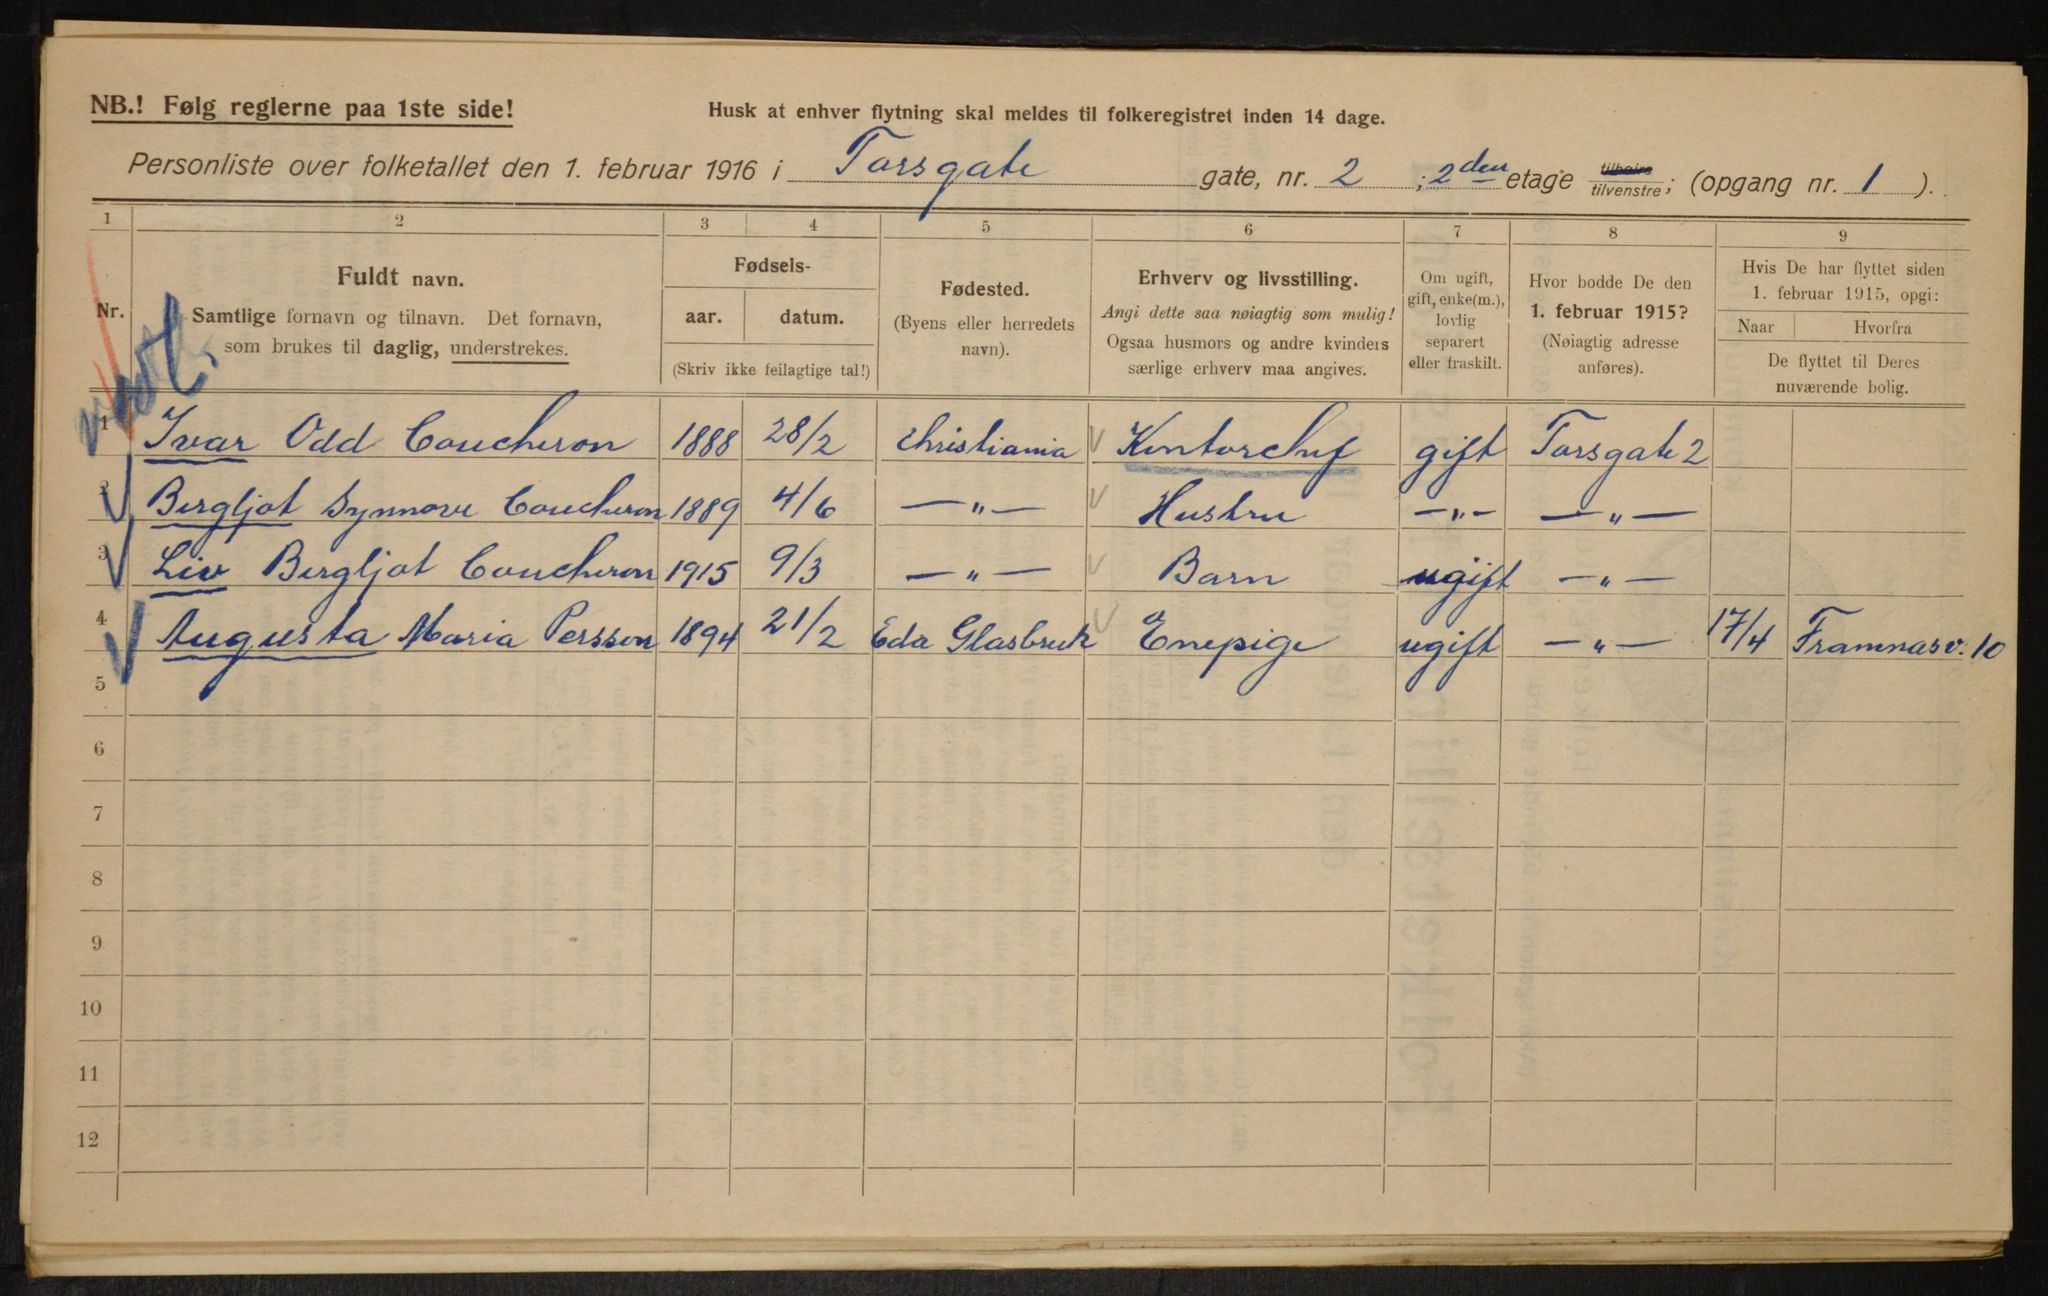 NB.! Følg reglerne paa 1ste side!
Husk at enhver flytning skal meldes til folkeregistret inden 14 dage.
Personliste over folketallet den 1. februar 1916 i Torsgate gate, nr. 2 ; 2den etage tilhøire tilvenstre; (opgang nr. 1 ).
1 2 3 4 5 6 7 8 9
Nr.
Fuldt navn.
Samtlige fornavn og tilnavn. Det fornavn,
som brukes til daglig, understrekes.
Fødsels-
aar. datum.
(Skriv ikke feilagtige tal!)
Fødested.
(Byens eller herredets
navn).
Erhverv og livsstilling.
Angi dette saa nøiagtig som mulig!
Ogsaa husmors og andre kvinders
særlige erhverv maa angives.
Om ugift,
gift, enke(m.),
lovlig
separert
eller fraskilt.
Hvor bodde De den
1. februar 1915?
(Nøiagtig adresse
anføres).
Hvis De har flyttet siden
1. februar 1915, opgi:
Naar Hvorfra
De flyttet til Deres
nuværende bolig.
1 Ivar Odd Coucheron 1888 28/2 Christiania Kontorchef gift Torsgate 2
2 Bergljot Synnøve Coucheron 1889 4/6 —„— Hustru —„— —„—
3 Liv Bergljot Coucheron 1915 9/3 —„— Barn ugift —„—
4 Augusta Maria Persson 1894 21/2 Eda Glasbruk Enepige ugift —„— 17/4 Framnæsv. 10
5
6
7
8
9
10
11
12